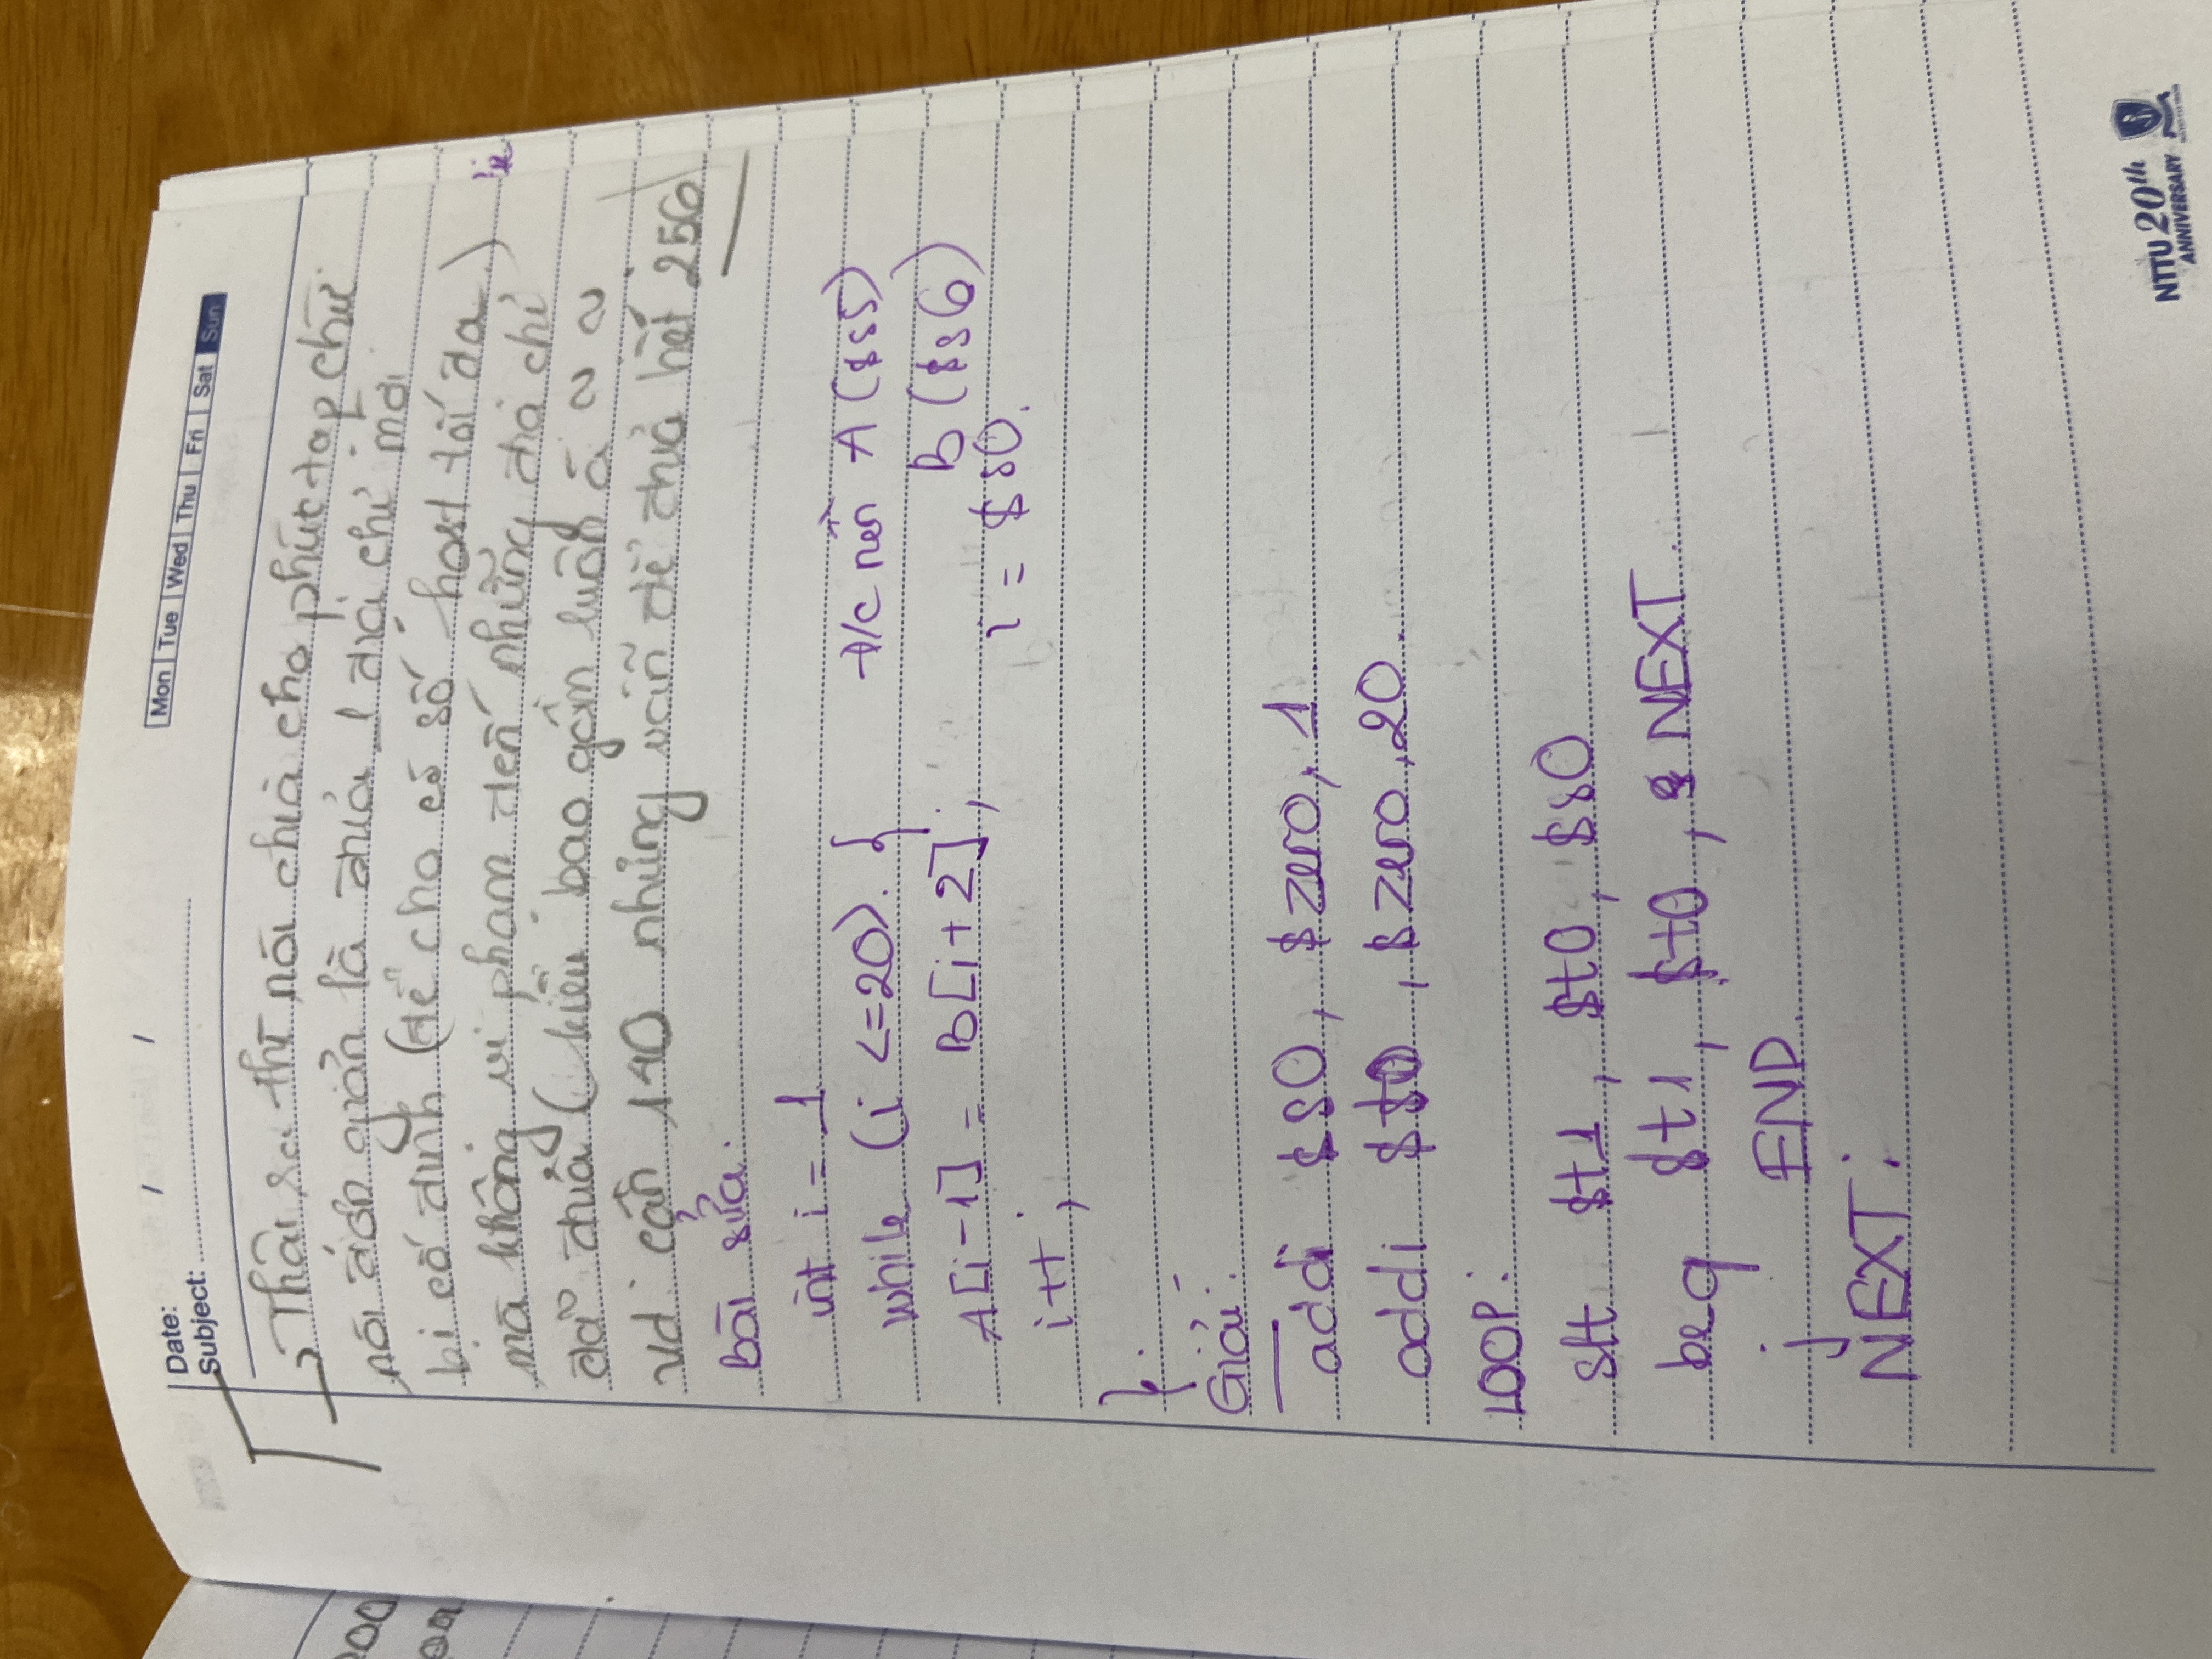 Date: / /
Mon Tue Wed Thu Fri Sat Sun
Subject:
→ Thật ra thì nói chia cho phức tạp chứ
nói đơn giản là đưa 1 địa chỉ mới
bị cố định (để cho có số host tối đa)
mà không vi phạm đến những địa chỉ
đã đưa ( kiểu bao gồm luôn á ~ ~
vd cần 140 nhưng vẫn để đưa hết 256
Bài sửa:
int i = 1
while (i <=20) { đ/c nền A ($s5)
A[i-1] = B[i+2]; B ($s6)
i++; i = $s0.
}.
Giải:
addi $s0, $zero, 1
addi $t0, $zero, 20.
LOOP:
slt $t1, $t0, $s0
beq $t1, $t0, NEXT.
j END.
NEXT:
NTTU 20th
ANNIVERSARY
00